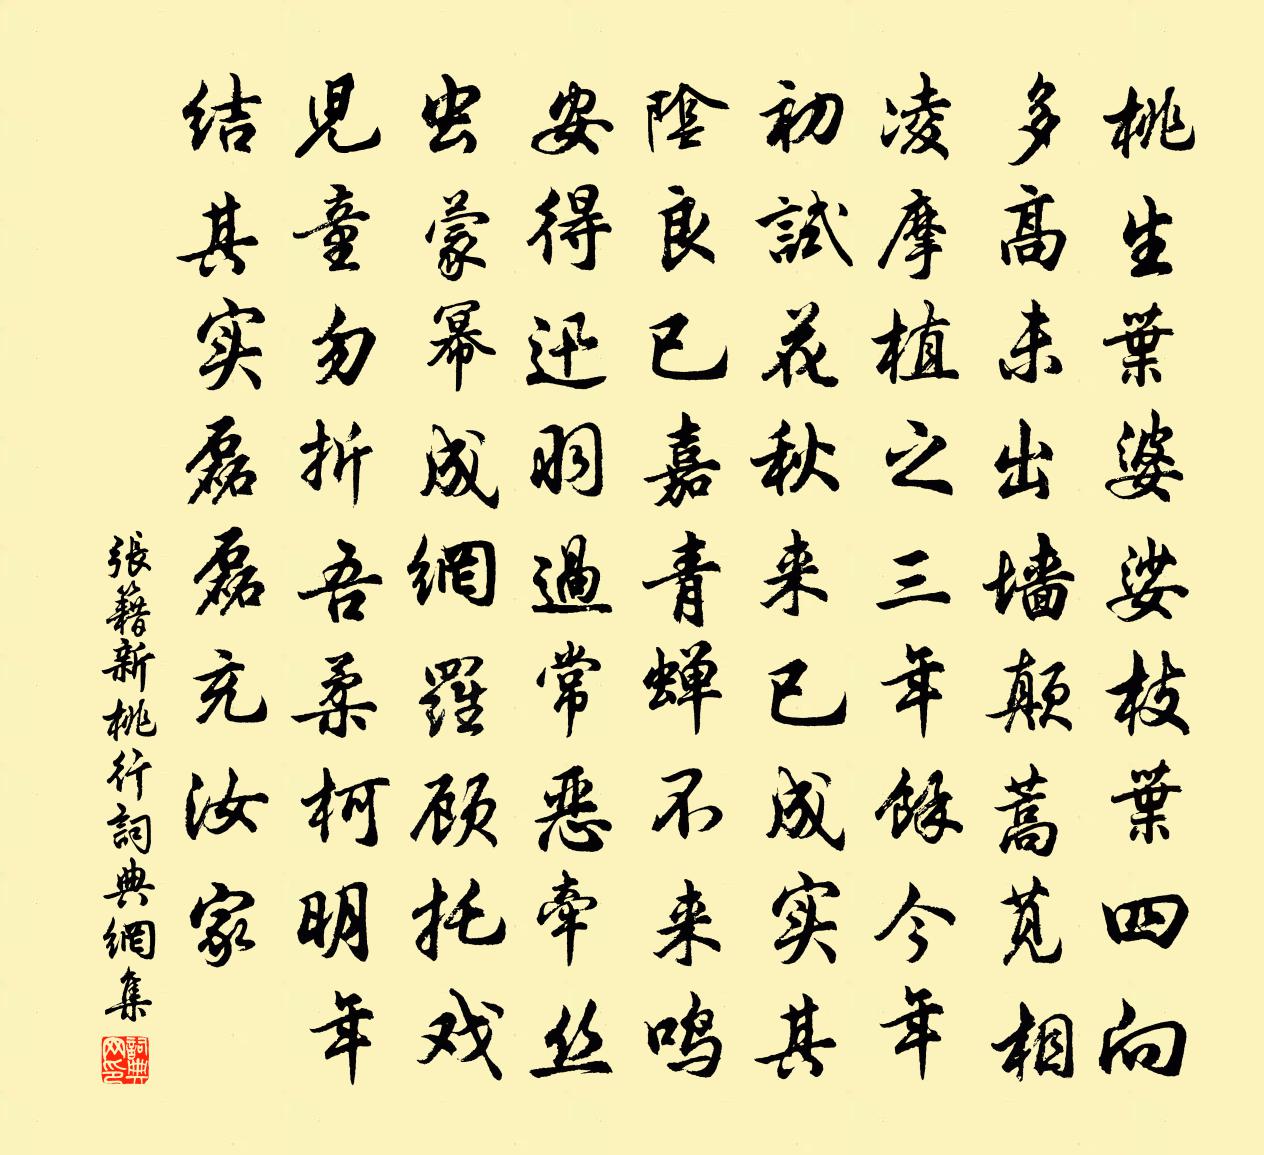 桃生葉婆娑枝葉四向
多高未出墙颠蒿苋相
凌摩植之三年餘今年
初試花秋来已成实其
陰良已嘉青蝉不来鸣
安得迅羽過常恶牵丝
虫蒙幂成網羅顾托戏
児童勿折吾柔柯明年
结其实磊磊充汝家
張籍新桃行詞典網集
詞典网印